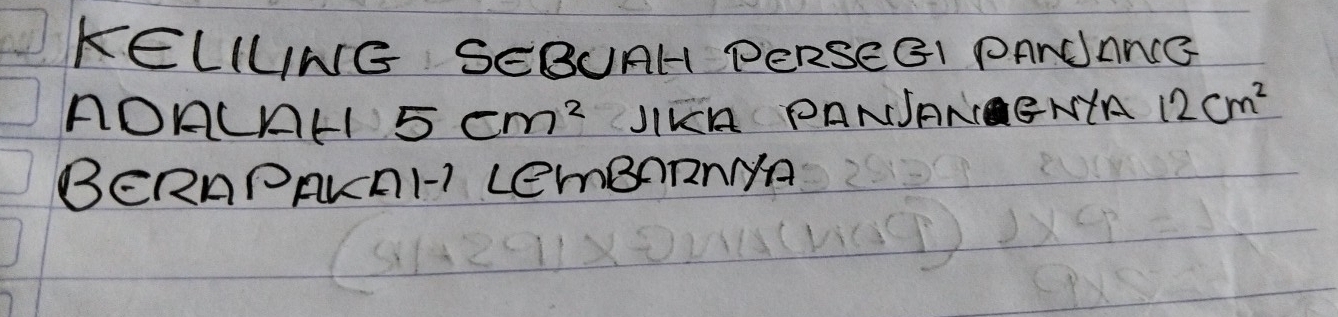 KELILING SEBUAH PERSEGI PANJANG
ADALAH 5 cm² JIKA PANJANGNYA 12 cm²
BERAPAKAH LEMBARNYA